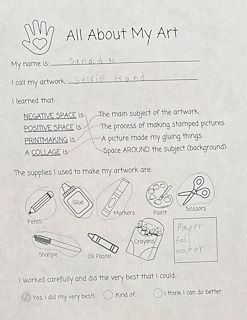 All About My Art
My name is:
I call my artwork selfie Hand
I learned that:
NEGATIVE SPACE is The main subject of the artwork.
POSITIVE SPACE is The process of making stamped pictures.
PRINTMAKING is A picture made my glueing things.
A COLLAGE is Space AROUND the subject (background).
The supplies I used to make my artwork are:
Pencil
Glue
Markers
Paint
Scissors
Sharpie
Oil Pastel
Crayons
Paper
foil
water
I worked carefully and did the very best that I could.
Yes. I did my very best! Kind of. I think I can do better.